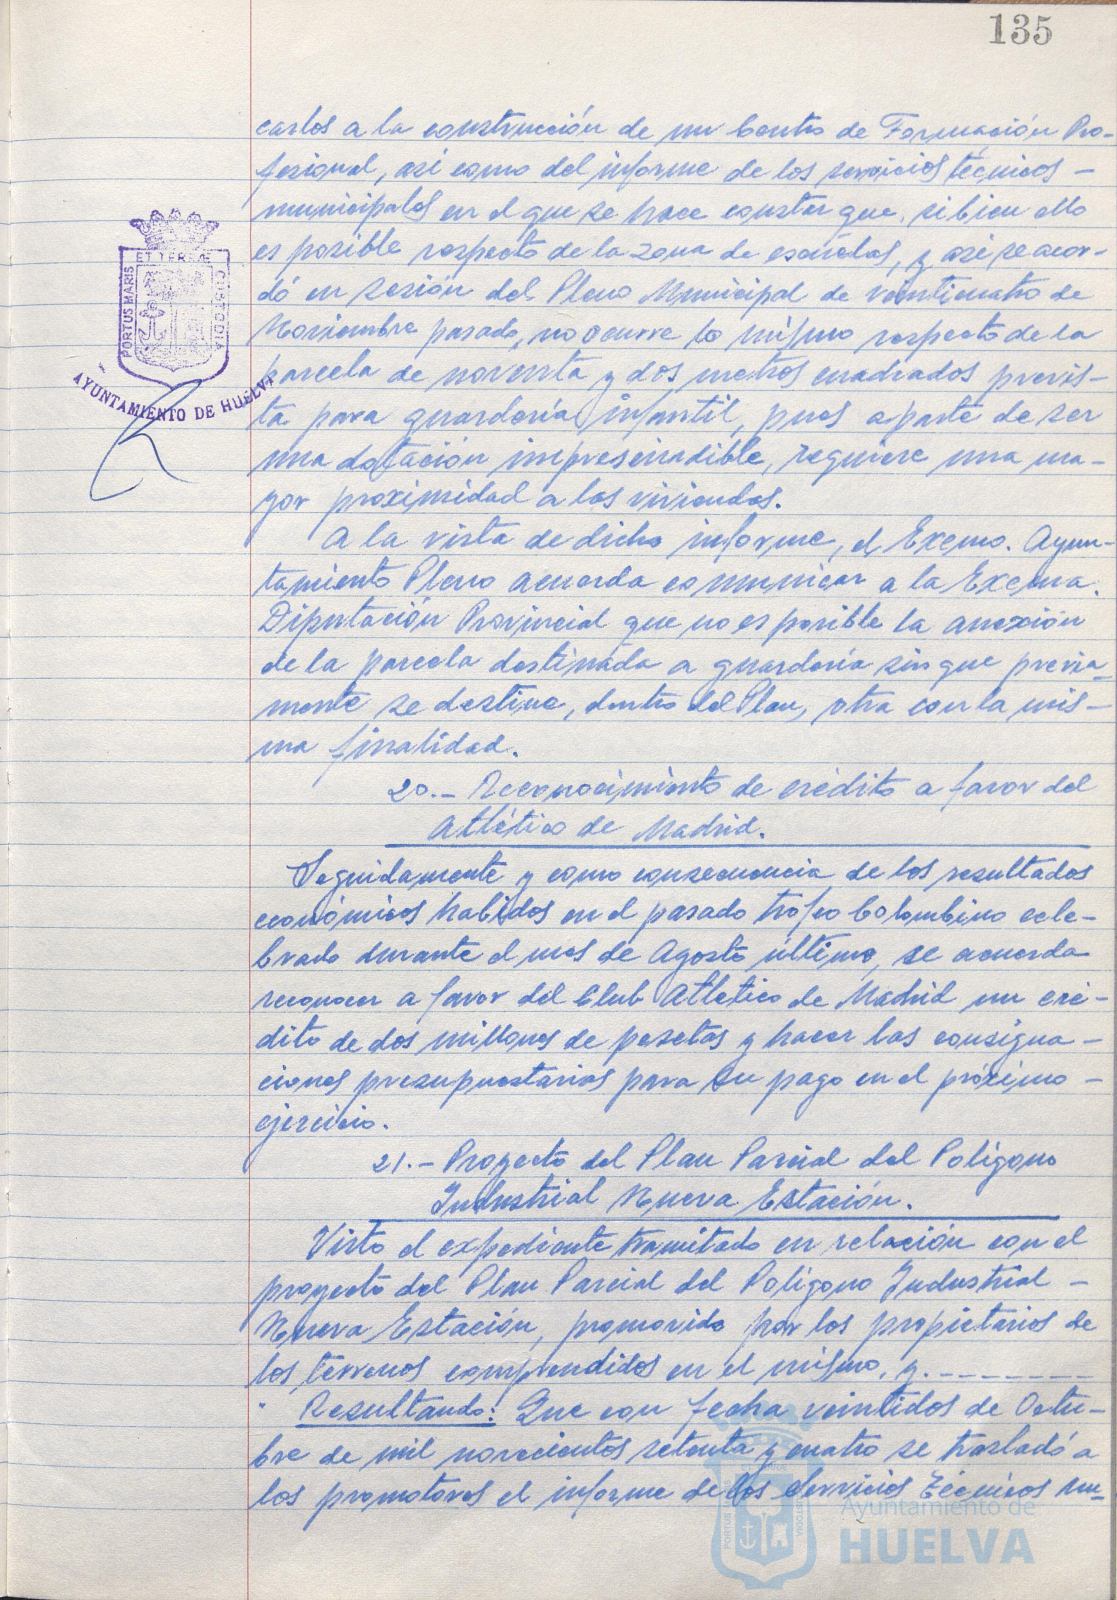 135
carlos a la construcción de un Centro de Formación Pro-
fesional, así como del informe de los servicios técnicos -
municipales en el que se hace constar que, si bien ello
es posible respecto de la zona de escuelas, y así se acor-
dó en sesión del Pleno Municipal de veinticuatro de
Noviembre pasado, no ocurre lo mismo respecto de la
parcela de noventa y dos metros cuadrados previs-
ta para guardería infantil, pues aparte de ser
una dotación imprescindible, requiere una ma-
yor proximidad a las viviendas.
A la vista de dicho informe, el Excmo. Ayun-
tamiento Pleno acuerda comunicar a la Excma.
Diputación Provincial que no es posible la anexión
de la parcela destinada a guardería sin que previa-
mente se destine, dentro del Plan, otra con la mis-
ma finalidad.
20.- Reconocimiento de crédito a favor del
Atlético de Madrid.
Seguidamente y como consecuencia de los resultados
económicos habidos en el pasado trofeo Colombino cele-
brado durante el mes de Agosto último, se acuerda
reconocer a favor del Club Atlético de Madrid un cré-
dito de dos millones de pesetas y hacer las consigna-
ciones presupuestarias para su pago en el próximo -
ejercicio.
21.- Proyecto del Plan Parcial del Polígono
Industrial Nueva Estación.
Visto el expediente tramitado en relación con el
proyecto del Plan Parcial del Polígono Industrial -
Nueva Estación, promovido por los propietarios de
los terrenos comprendidos en el mismo, y --------
Resultando: Que con fecha veintidos de Octu-
bre de mil novecientos setenta y cuatro se trasladó a
los promotores el informe de los Servicios Técnicos mu-
PORTUS MARIS
ET TERRAE
CUSTODIA
AYUNTAMIENTO DE HUELVA
Ayuntamiento de
HUELVA